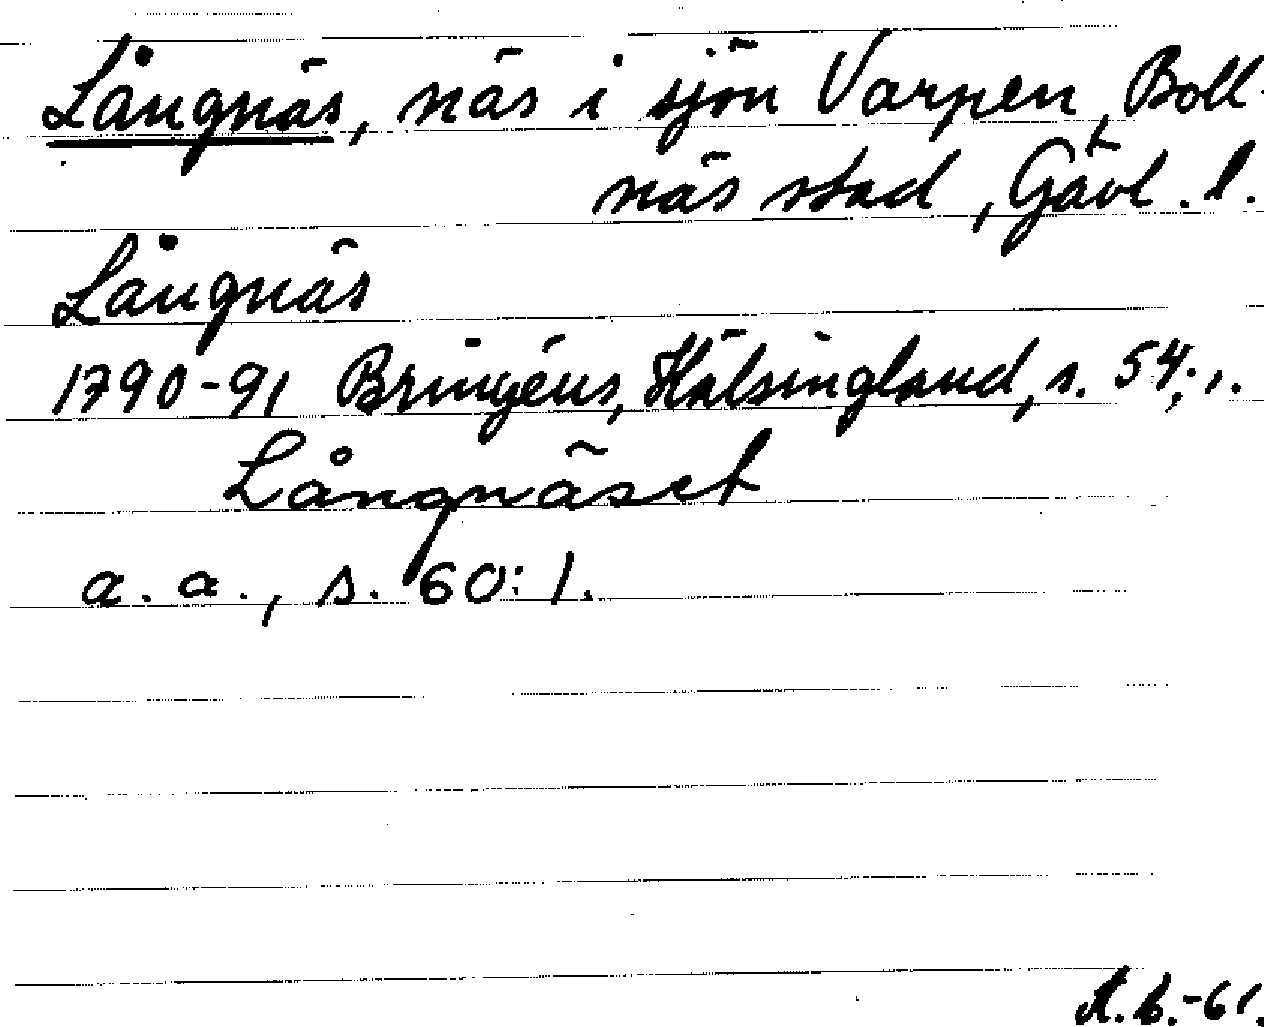 Långnäs, näs i sjön Varpen, Boll-
näs stad, Gävl. l.
Långnäs
1790-91 Bringéus, Hälsingland, s. 54; 1.
Långnäset
a. a., s. 60: 1.
A.b.-61.